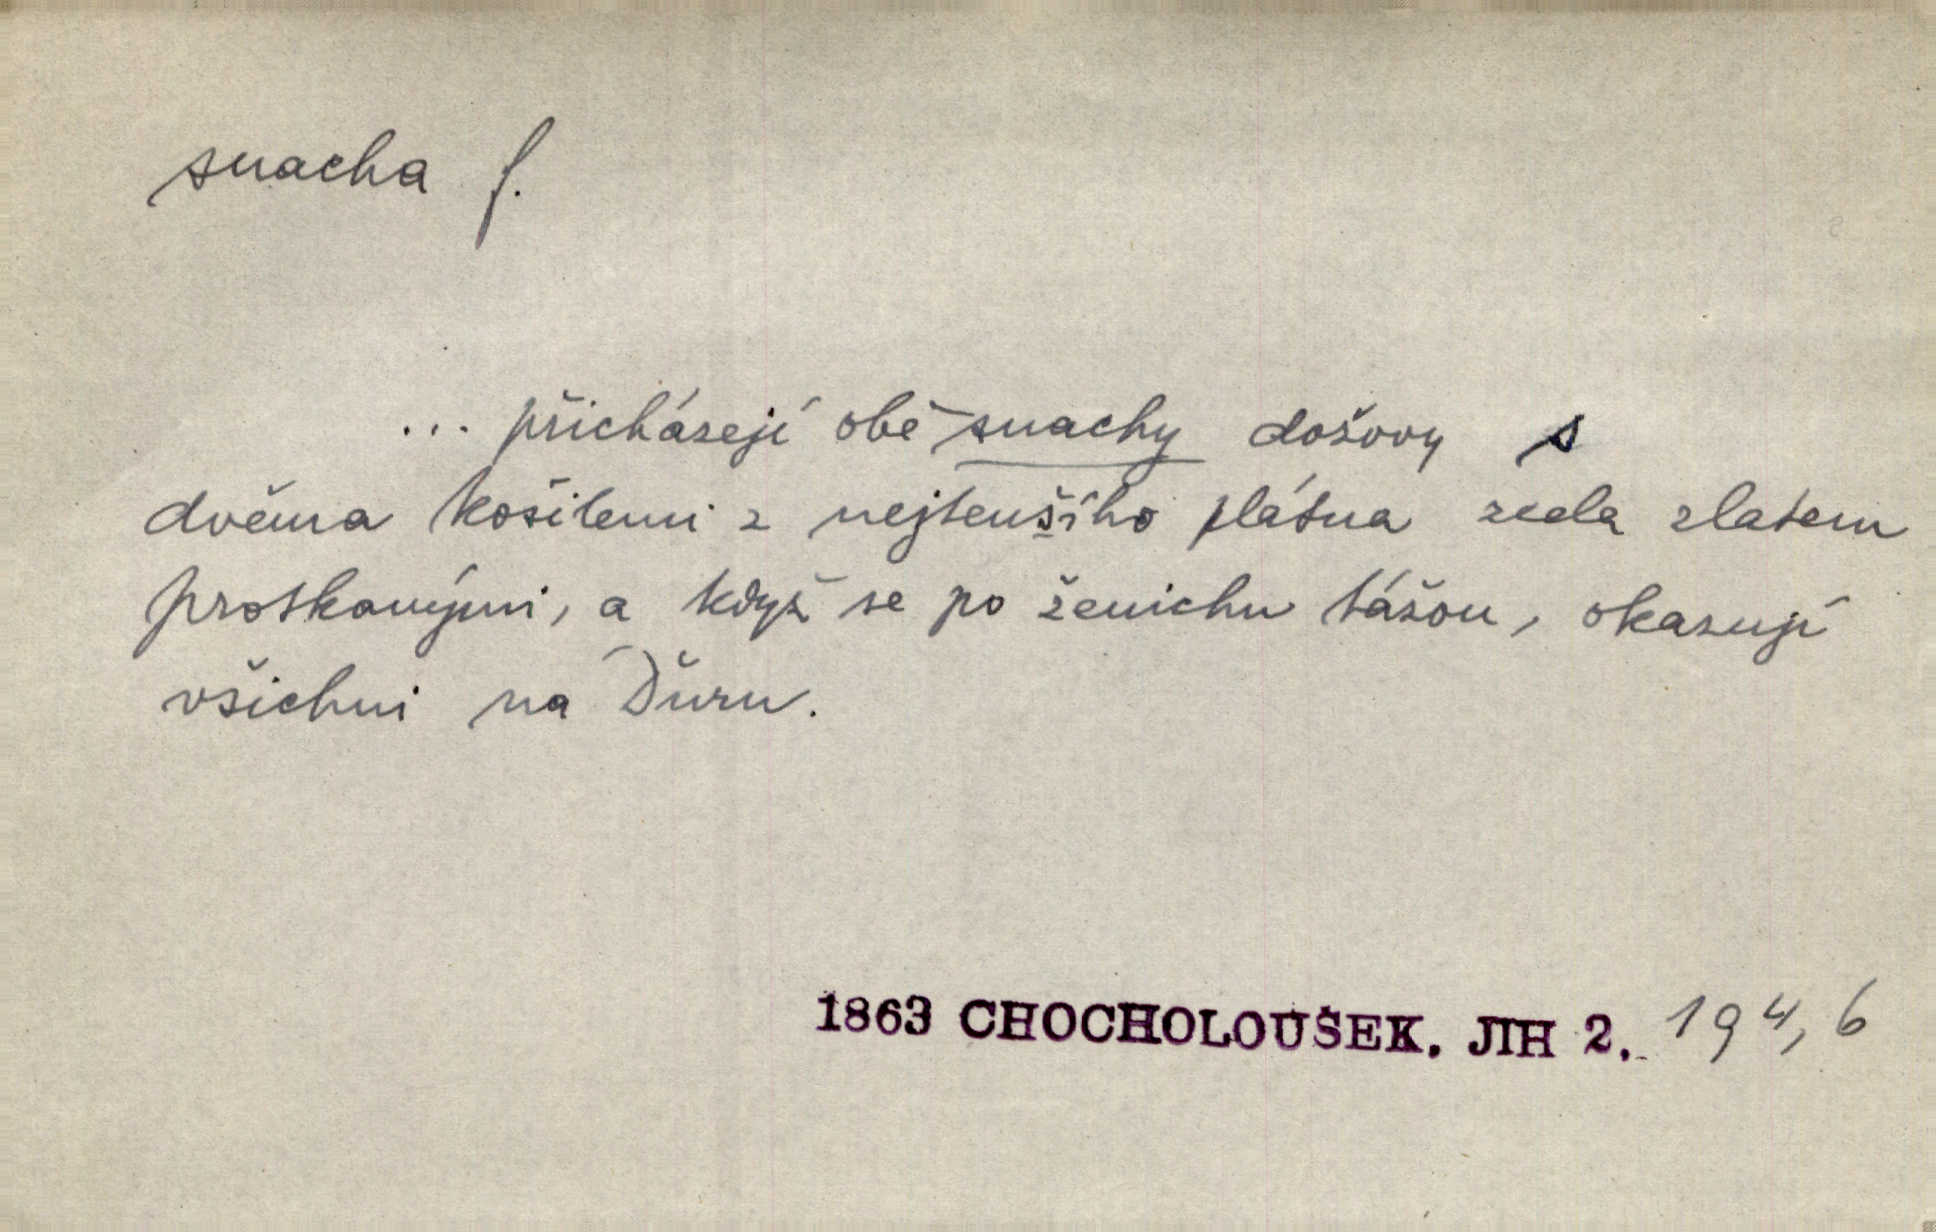 snacha f.
... přicházejí obě snachy došovy s
dvěma košilemi z nejtenšího plátna zcela zlatem
protkanými, a když se po ženichu tážou, okazují
všichni na Ďuru.
1863 CHOCHOLOUŠEK. JIH 2. 194, 6